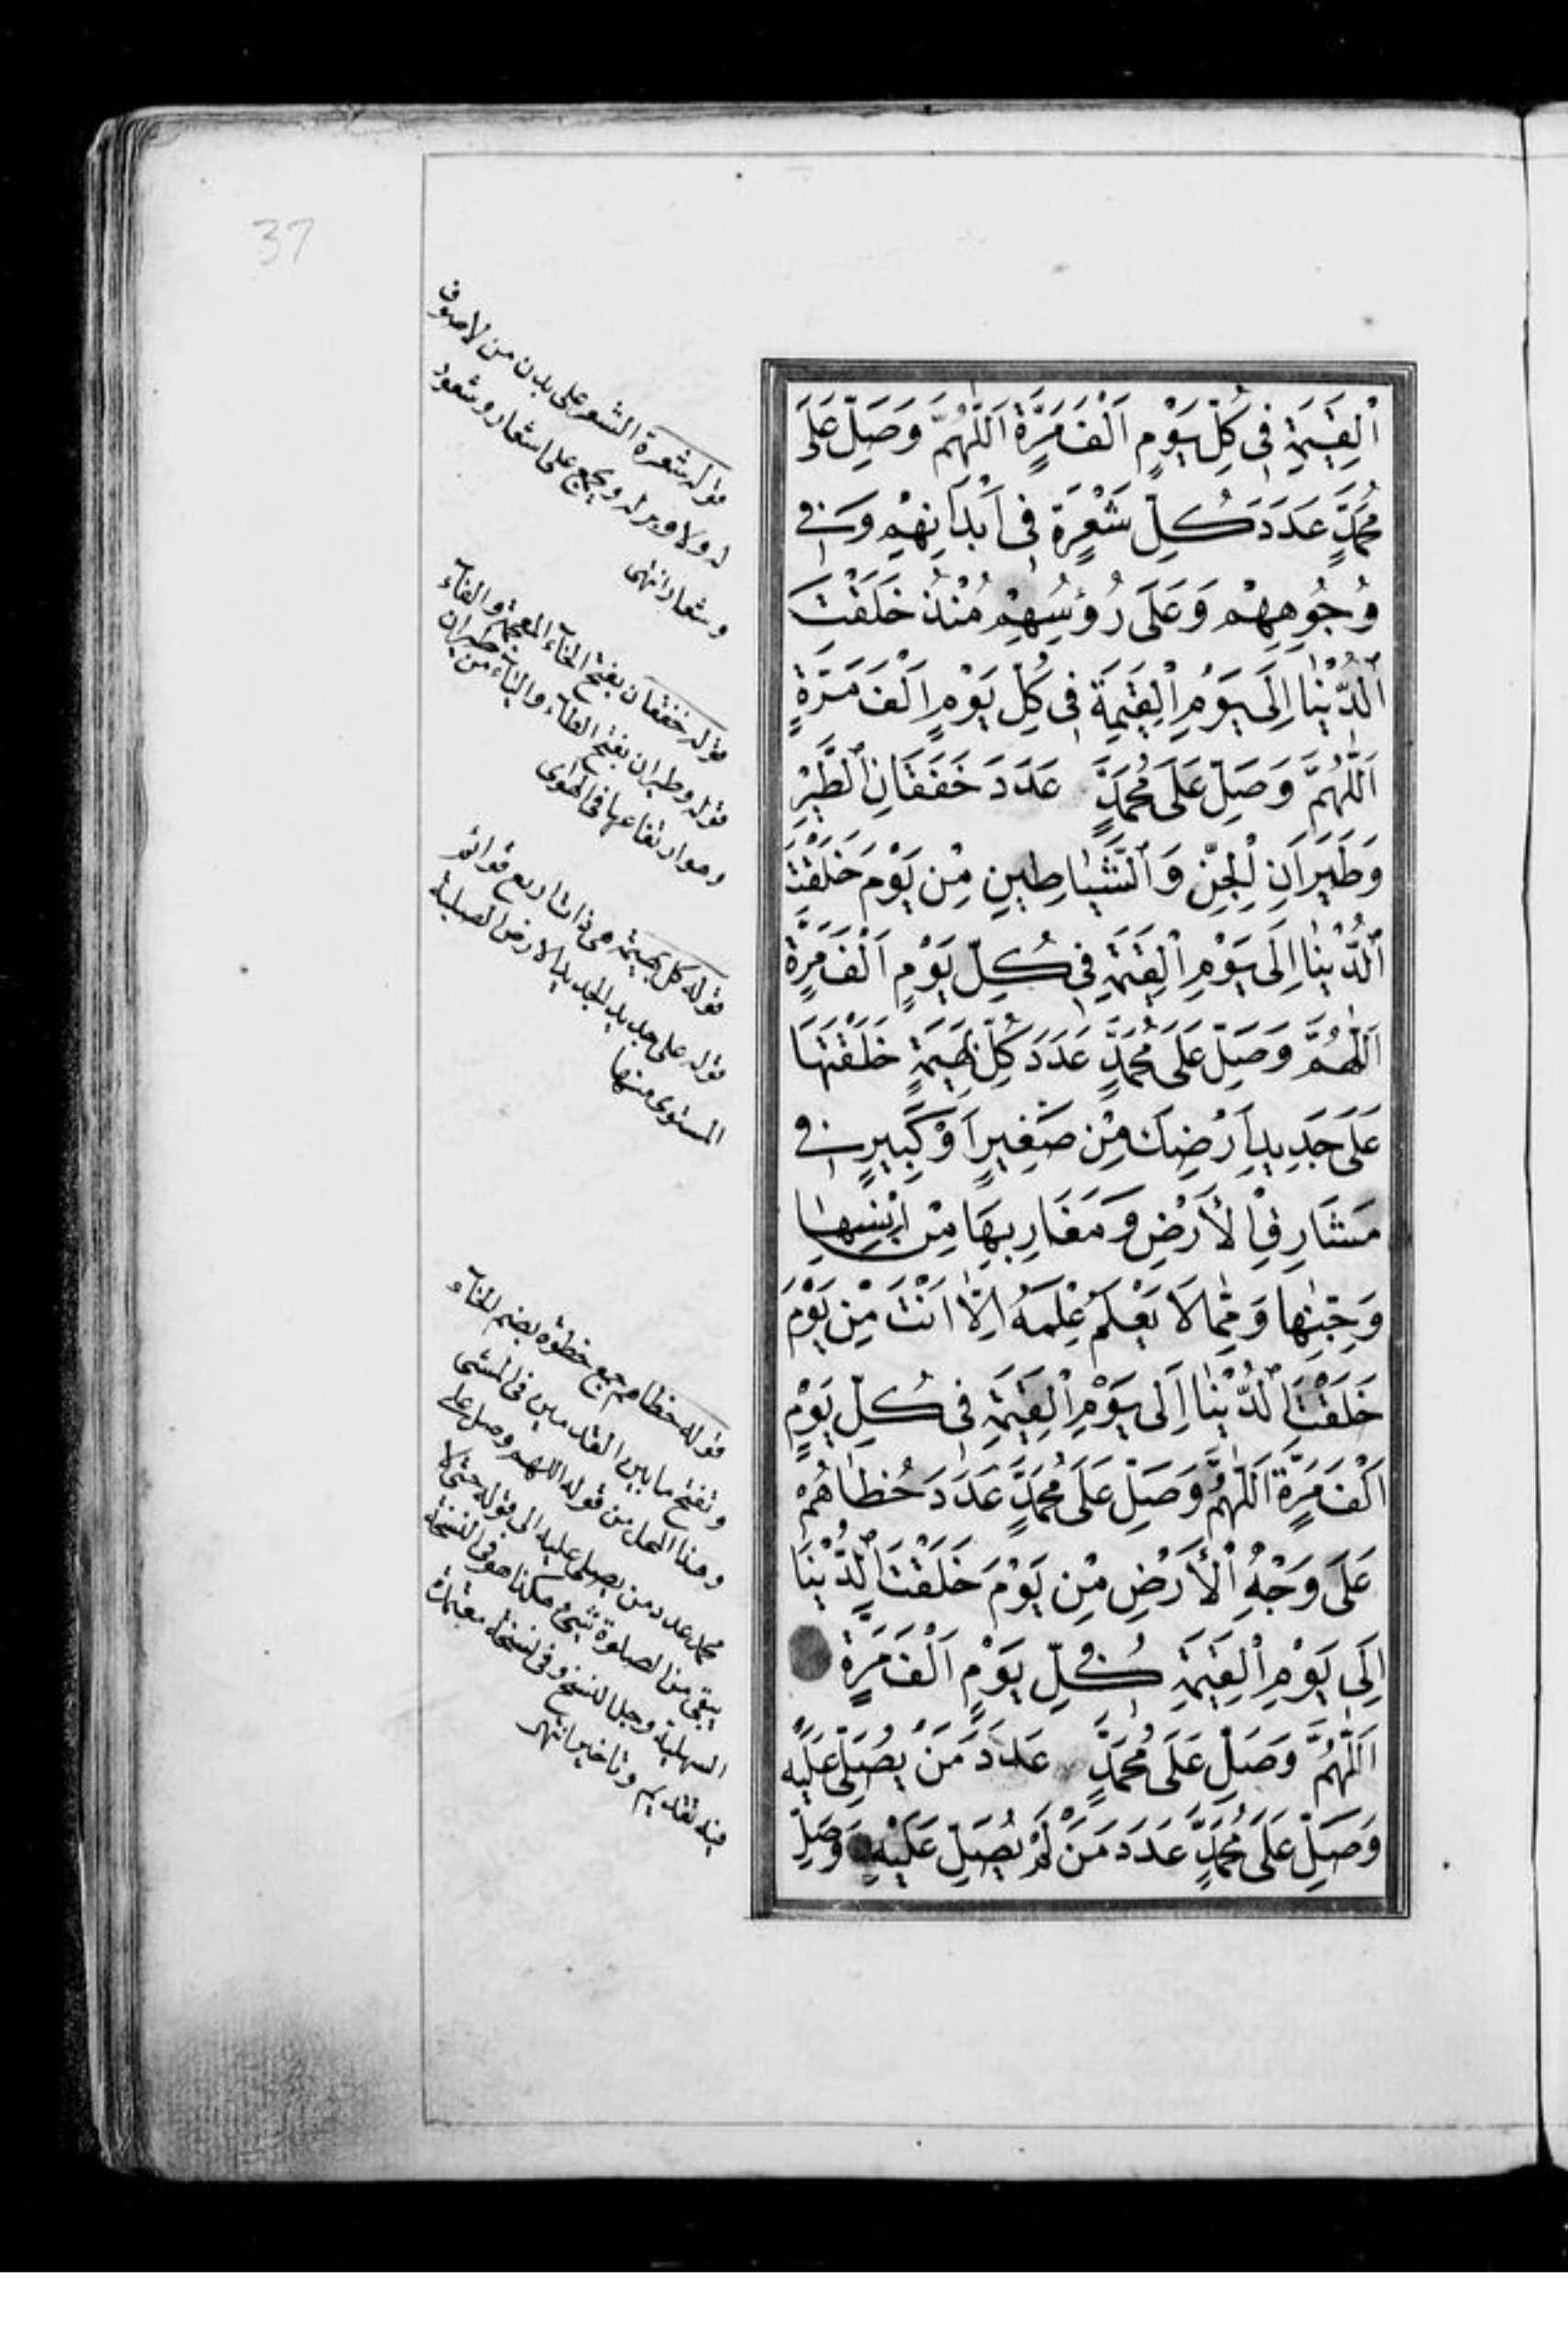 37
اَلْقِيٰمَةِ فِي كُلِّ يَوْمٍ اَلْفَ مَرَّةٍ اَللّٰهُمَّ وَصَلِّ عَلَى
مُحَمَّدٍ عَدَدَ كُلِّ شَعْرَةٍ فِي اَبْدَانِهِمْ وَفِي
وُجُوهِهِمْ وَعَلَى رُؤُسِهِمْ مُنْذُ خَلَقْتَ
اَلدُّنْيَا اِلَى يَوْمِ الْقِيٰمَةِ فِي كُلِّ يَوْمٍ اَلْفَ مَرَّةٍ
اَللّٰهُمَّ وَصَلِّ عَلَى مُحَمَّدٍ عَدَدَ خَفَقَانِ الطَّيْرِ
وَطَيَرَانِ الْجِنِّ وَالشَّيَاطِينِ مِنْ يَوْمَ خَلَقْتَ
الدُّنْيَا اِلَى يَوْمِ الْقِيٰمَةِ فِي كُلِّ يَوْمٍ اَلْفَ مَرَّةٍ
اَللّٰهُمَّ وَصَلِّ عَلَى مُحَمَّدٍ عَدَدَ كُلِّ بَهِيمَةٍ خَلَقْتَهَا
عَلَى جَدِيدِ اَرْضِكَ مِنْ صَغِيرٍ اَوْ كَبِيرٍ فِي
مَشَارِقِ الْاَرْضِ وَمَغَارِبِهَا مِنْ اِنْسِهَا
وَجِنِّهَا وَمِمَّا لَا يَعْلَمُ عِلْمَهُ اِلَّا اَنْتَ مِنْ يَوْمَ
خَلَقْتَ الدُّنْيَا اِلَى يَوْمِ الْقِيٰمَةِ فِي كُلِّ يَوْمٍ
اَلْفَ مَرَّةٍ اَللّٰهُمَّ وَصَلِّ عَلَى مُحَمَّدٍ عَدَدَ خُطَاهُمْ
عَلَى وَجْهِ الْاَرْضِ مِنْ يَوْمَ خَلَقْتَ الدُّنْيَا
اِلَى يَوْمِ الْقِيٰمَةِ فِي كُلِّ يَوْمٍ اَلْفَ مَرَّةٍ
اَللّٰهُمَّ وَصَلِّ عَلَى مُحَمَّدٍ عَدَدَ مَنْ يُصَلِّى عَلَيْهِ
وَصَلِّ عَلَى مُحَمَّدٍ عَدَدَ مَنْ لَمْ يُصَلِّ عَلَيْهِ وَصَلِّ
قوله شعرة الشعر على بدن من لا صوف
له ولا وبر له ويجمع على اشعار وشعور
وشعار انتهى
قوله خفقان بفتح الخاء المعجمة والفاء
قوله وطيران بفتح الطاء والياء من طيران
وهو ارتفاعها في الهوى
قوله كل بهيمة هي ذات اربع قوائم
قوله على جديد الجديد الارض الصلبة
المستوى منها
قوله خطاهم جمع خطوة بضم الخاء
وتفتح ما بين القدمين في المشى
وهذا المحل من قوله اللهم وصل على
محمد عدد من يصلى عليه الى قوله حتى لا
يبقى من الصلوة شئ هكذا هو في النسخة
السهلية وجل النسخ وفي نسخة معتمدة
فيه تقديم وتأخير انتهى